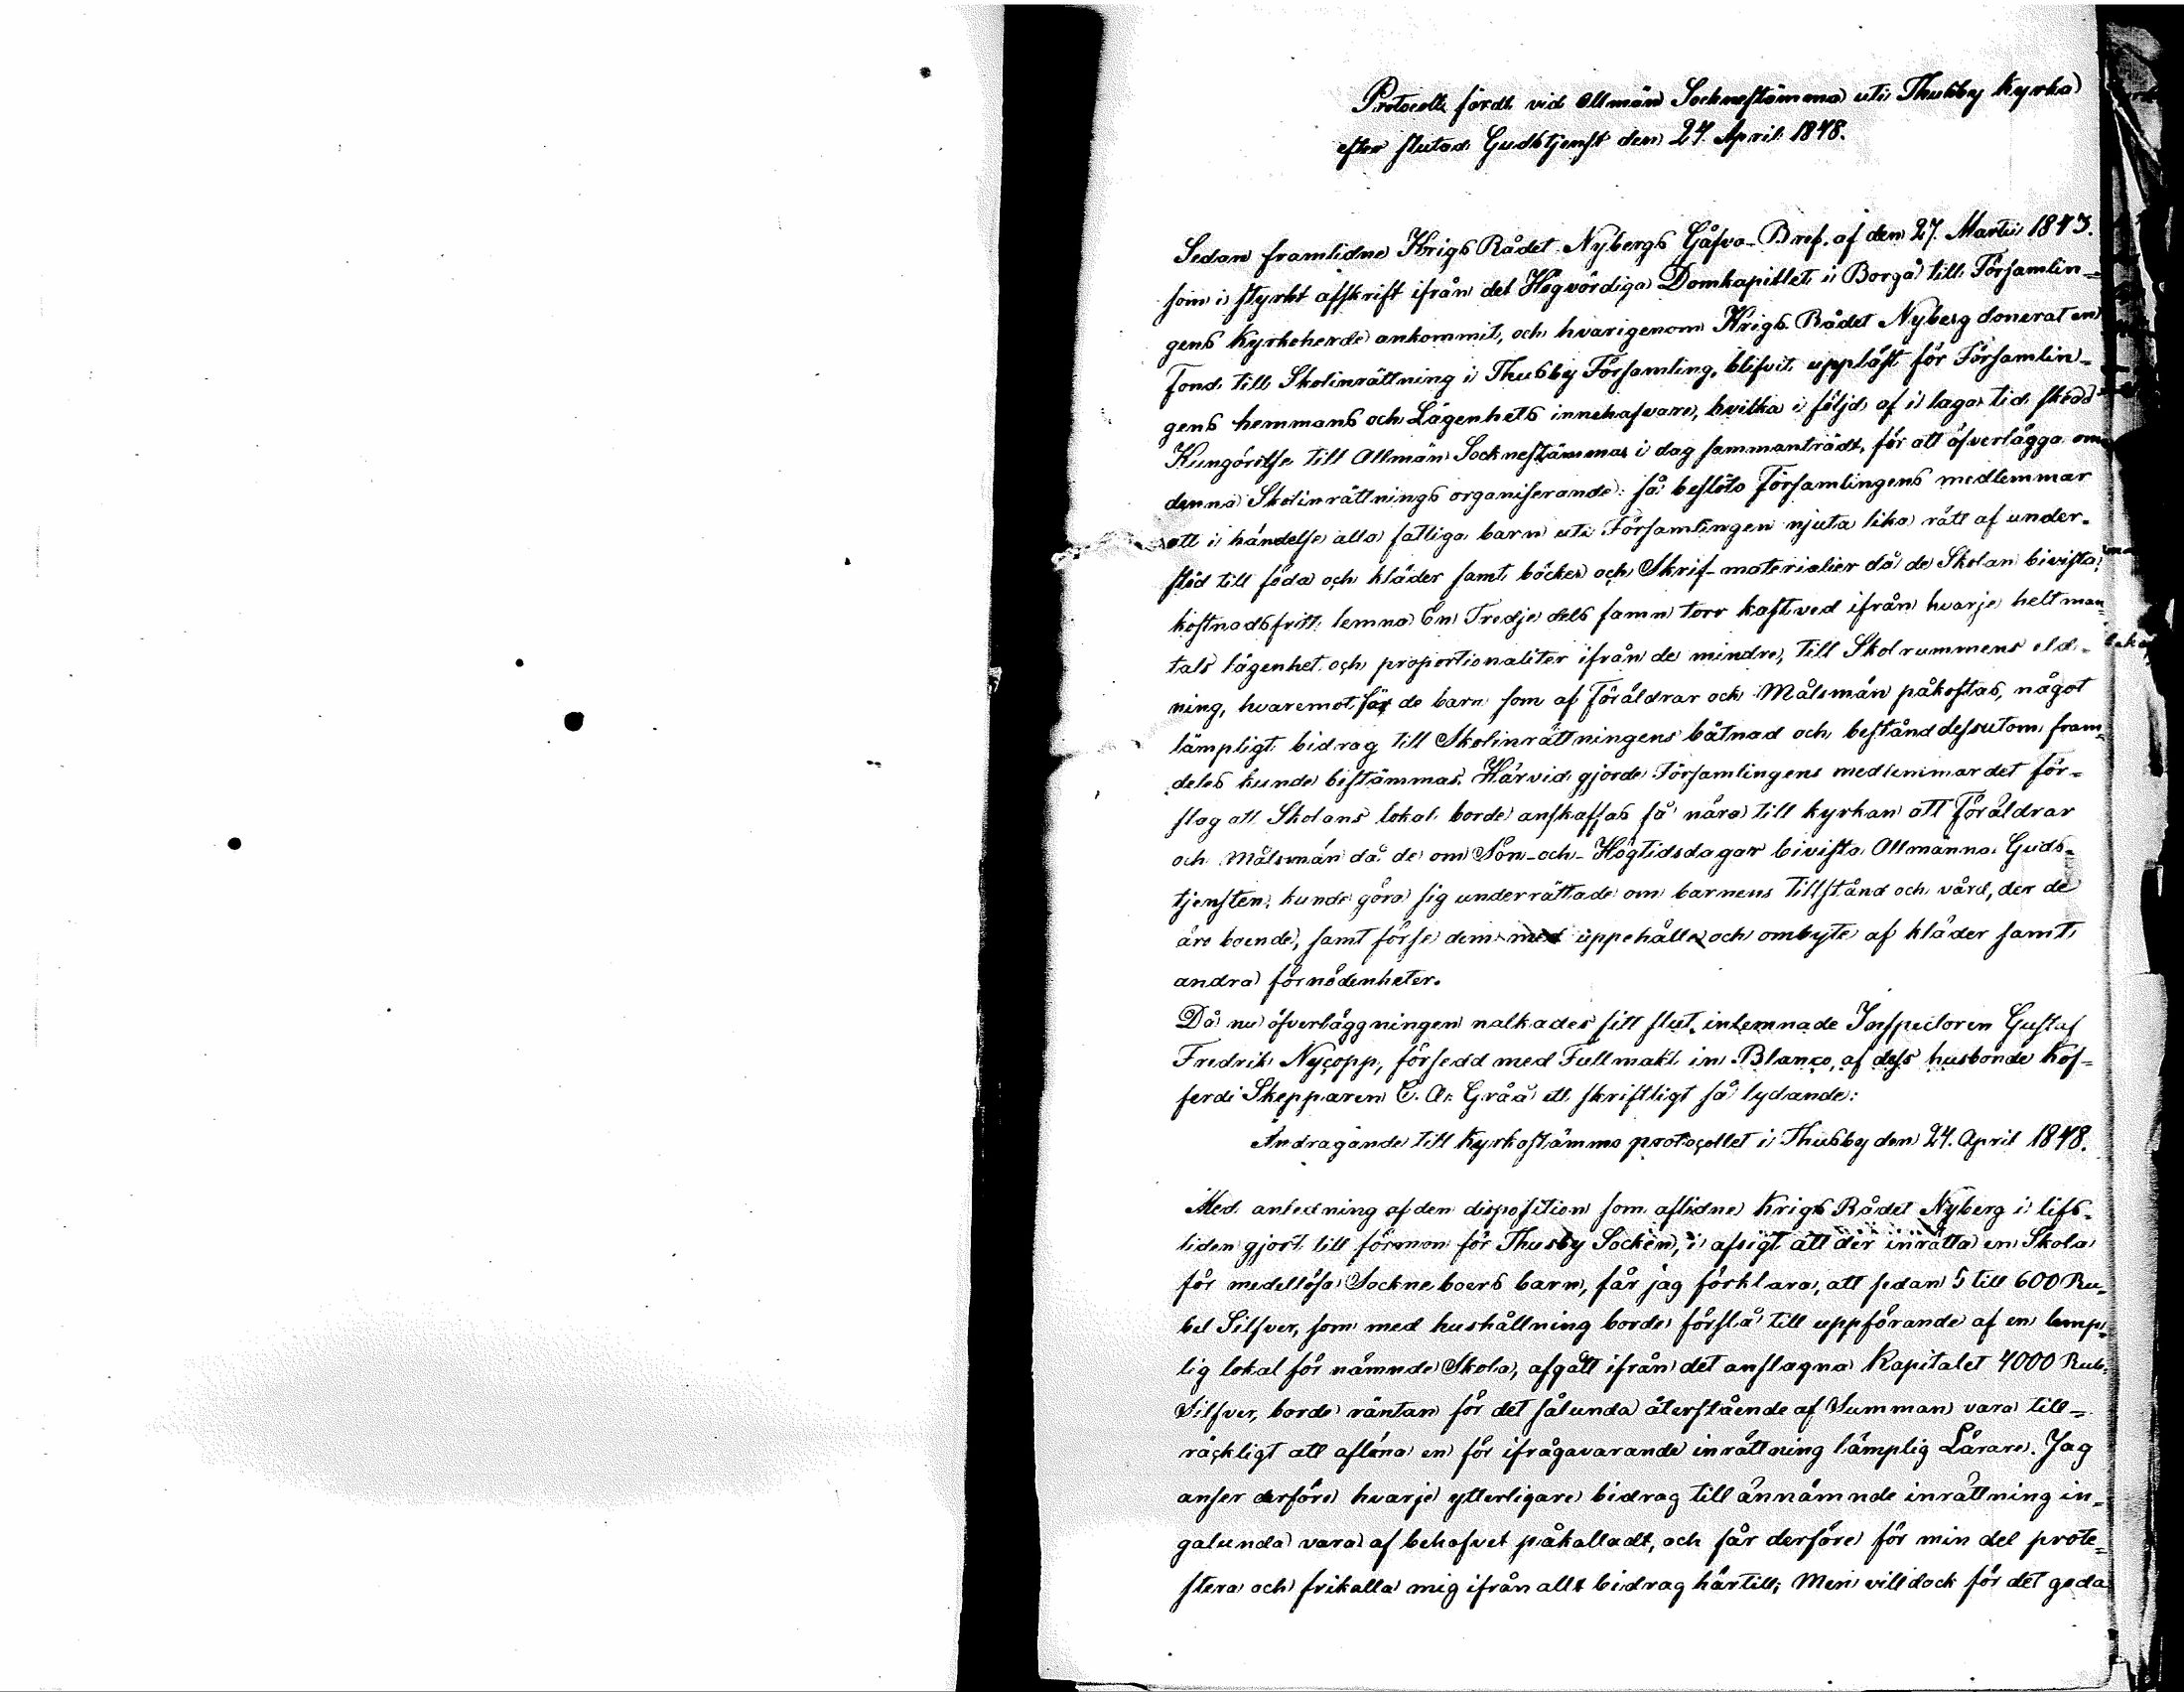 Protocoll fördt vid Allmän Sockneftämma uti Thusby Kyrka
efter slutad Gudstjenst den 24. April 1848.
Sedan framlidne Krigs Rådet Nybergs Gåfvo-Bref. af den 27. Martii 1843.
som i styrkt afskrift ifrån det Högvördiga Domkapitlet i Borgå till Församlin=
gens Kyrkoherde ankommit, och hvarigenom Krigs Rådet Nyberg donerat en
Fond till Skolinrättning i Thusby Församling, blifvit uppläst för Församlin=
gens hemmans och Lägenhets innehafvare, hvilka i följd af i laga tid skedd
Kungörelse till Allmän Socknestämma i dag sammanträdt, för att öfverlägga om
denna Skolinrättnings organiserande: så beslöto Församlingens medlemmar
att i händelse alla fattiga barn uti Församlingen njuta lika rätt af under-
stöd till föda och kläder samt böcker och Skrif-materialier då de Skolan bivista,
kostnadsfritt lemna En Tredje dels famn torr kastved ifrån hvarje helt man=
tals lägenhet och proportionaliter ifrån de mindre, till Skolrummens eld-
ning, hvaremot för de barn som af Föräldrar och Målsmän påkostas, något
lämpligt bidrag till Skolinrättningens båtnad och bestånd dessutom fram=
deles kunde bestämmas. Härvid gjorde Församlingens medlemmar det för=
slag att Skolans lokal borde anskaffas så nära till kyrkan att Föräldrar
och Målsmän då de om Sön-och-Högtidsdagar bivista Allmänna Guds=
tjensten, kunde göra sig underrättade om barnens tillstånd och vård, der de
äro boende, samt förse dem med uppehälle och ombyte af kläder samt
andra förnödenheter.
Då nu öfverläggningen nalkades sitt slut, inlemnade Inspectoren Gustaf
Fredrik Nycopp, försedd med Fullmakt in Blanco, af dess husbonde Kof=
ferdi Skepparen C. A. Gråå ett skriftligt så lydande:
Andragande till Kyrkostämmo protocollet i Thusby den 24. April 1848.
Med anledning af den disposition som aflidne Krigs Rådet Nyberg i lifs-
tiden gjort till förmon för Thusby Socken, i afsigt att der inrätta en Skola
för medellösa Sockneboers barn, får jag förklara, att sedan 5 till 600 Ru=
bel Silfver, som med hushållning borde förslå till uppförande af en lemp=
lig lokal för nämnde Skola, afgått ifrån det anslagna Kapitalet 4000 Rub.
Silfver, borde räntan för det sålunda återstående af Summan vara till=
räckligt att aflöna en för ifrågavarande inrättning lämplig Lärare. Jag
anser derföre hvarje ytterligare bidrag till ännämnde inrättning in=
galunda vara af behofvet påkalladt, och får derföre för min del prote=
stera och frikalla mig ifrån allt bidrag härtill; Men vill dock för det goda